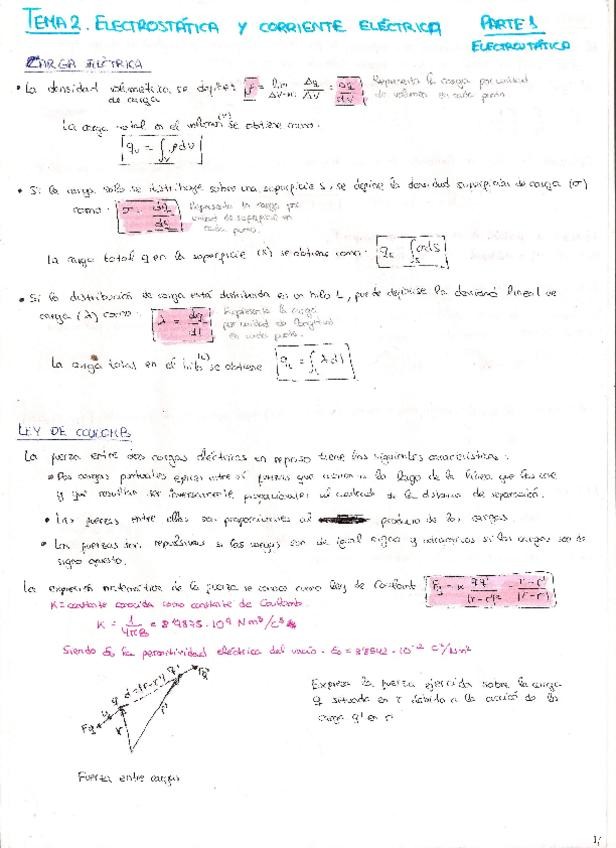 TEMA 2. ELECTROSTÁTICA Y CORRIENTE ELÉCTRICA PARTE 1
ELECTROSTÁTICA
CARGA ELÉCTRICA
• La densidad volumétrica se define: ρ = lim Δq/ΔV = dq/dV Representa la carga por unidad
de carga de volumen en cada punto.
La carga total en el volumen (V) se obtiene como:
q_v = ∫_V ρ dv
• Si la carga solo se distribuye sobre una superficie S, se define la densidad superficial de carga (σ)
como: σ = dq/ds Representa la carga por
unidad de superficie en
cada punto.
La carga total q en la superficie (S) se obtiene como: q_s = ∫_S σ ds
• Si la distribución de carga está distribuida en un hilo L, puede definirse la densidad lineal de
carga (λ) como: λ = dq/dl Representa la carga
por unidad de longitud
en cada punto.
La carga total en el hilo (L) se obtiene q_L = ∫_L λ dl
LEY DE COULOMB
La fuerza entre dos cargas eléctricas en reposo tiene las siguientes características:
• Dos cargas puntuales ejercen entre sí fuerzas que actúan a lo largo de la línea que las une
y que resultan ser inversamente proporcionales al cuadrado de la distancia de separación.
• Las fuerzas entre ellas son proporcionales al producto de las cargas.
• Las fuerzas son repulsivas si las cargas son de igual signo y atractivas si las cargas son de
signo opuesto.
La expresión matemática de la fuerza se conoce como ley de Coulomb: Fq = K qq'/|r-r'|² r-r'/|r-r'|
K = constante conocida como constante de Coulomb.
K = 1/4πε₀ = 8'9875·10⁹ Nm²/C²
Siendo ε₀ la permitividad eléctrica del vacío. ε₀ = 8'8542·10⁻¹² C²/Nm²
Fq q d=|r-r'| q' Fq'
r r'
Expresa la fuerza ejercida sobre la carga
q situada en r debido a la acción de la
carga q' en r'
Fuerza entre cargas
1/